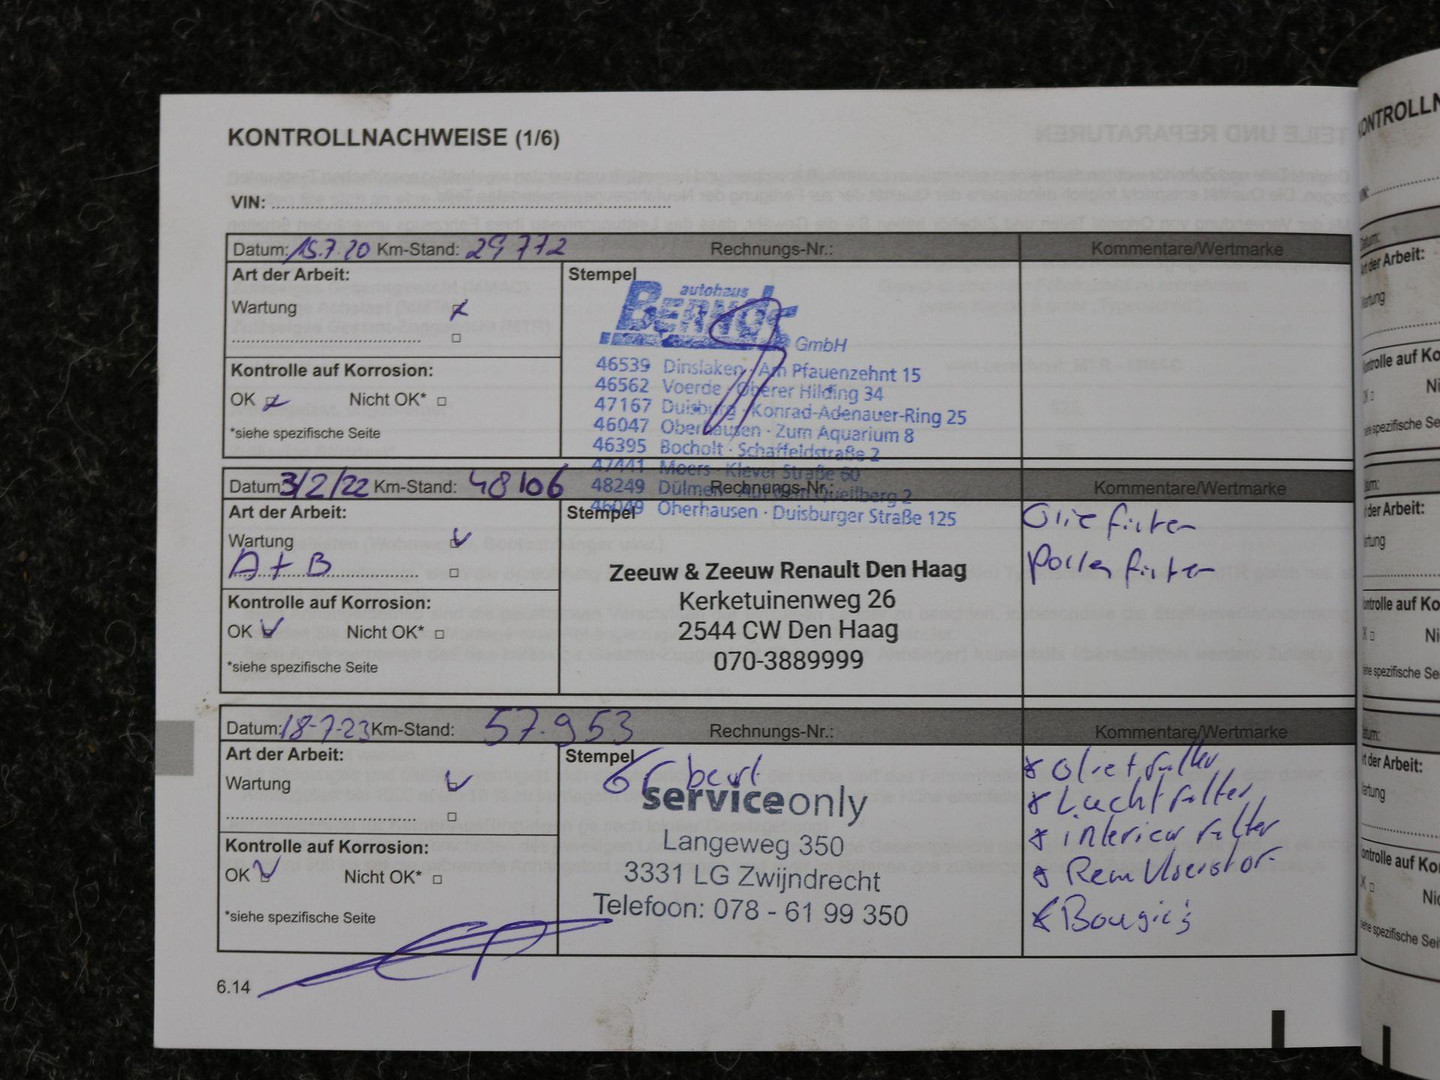 KONTROLLNACHWEISE (1/6)
VIN:
Datum: 15.7.20 Km-Stand: 29772 Rechnungs-Nr.: Kommentare/Wertmarke
Art der Arbeit:
Wartung
Kontrolle auf Korrosion:
OK Nicht OK*
*siehe spezifische Seite
Stempel
autohaus
BERNDS
GmbH
46539 Dinslaken · Am Pfauenzehnt 15
46562 Voerde · Oberer Hilding 34
47167 Duisburg · Konrad-Adenauer-Ring 25
46047 Oberhausen · Zum Aquarium 8
46395 Bocholt · Schaffeldstraße 2
47441 Moers · Klever Straße 60
48249 Dülmen · Auf dem Quellberg 2
46049 Oberhausen · Duisburger Straße 125
Datum: 3/2/22 Km-Stand: 48106 Rechnungs-Nr.: Kommentare/Wertmarke
Art der Arbeit:
Wartung
A+B
Kontrolle auf Korrosion:
OK Nicht OK*
*siehe spezifische Seite
Stempel
Zeeuw & Zeeuw Renault Den Haag
Kerketuinenweg 26
2544 CW Den Haag
070-3889999
Olie filter
Pollen filter
Datum: 18-7-23 Km-Stand: 57.953 Rechnungs-Nr.: Kommentare/Wertmarke
Art der Arbeit:
Wartung
Kontrolle auf Korrosion:
OK Nicht OK*
*siehe spezifische Seite
Stempel
serviceonly
Langeweg 350
3331 LG Zwijndrecht
Telefoon: 078 - 61 99 350
* Olie + filter
* Luchtfilter
* interieur filter
* Remvloeistof
* Bougie's
6.14